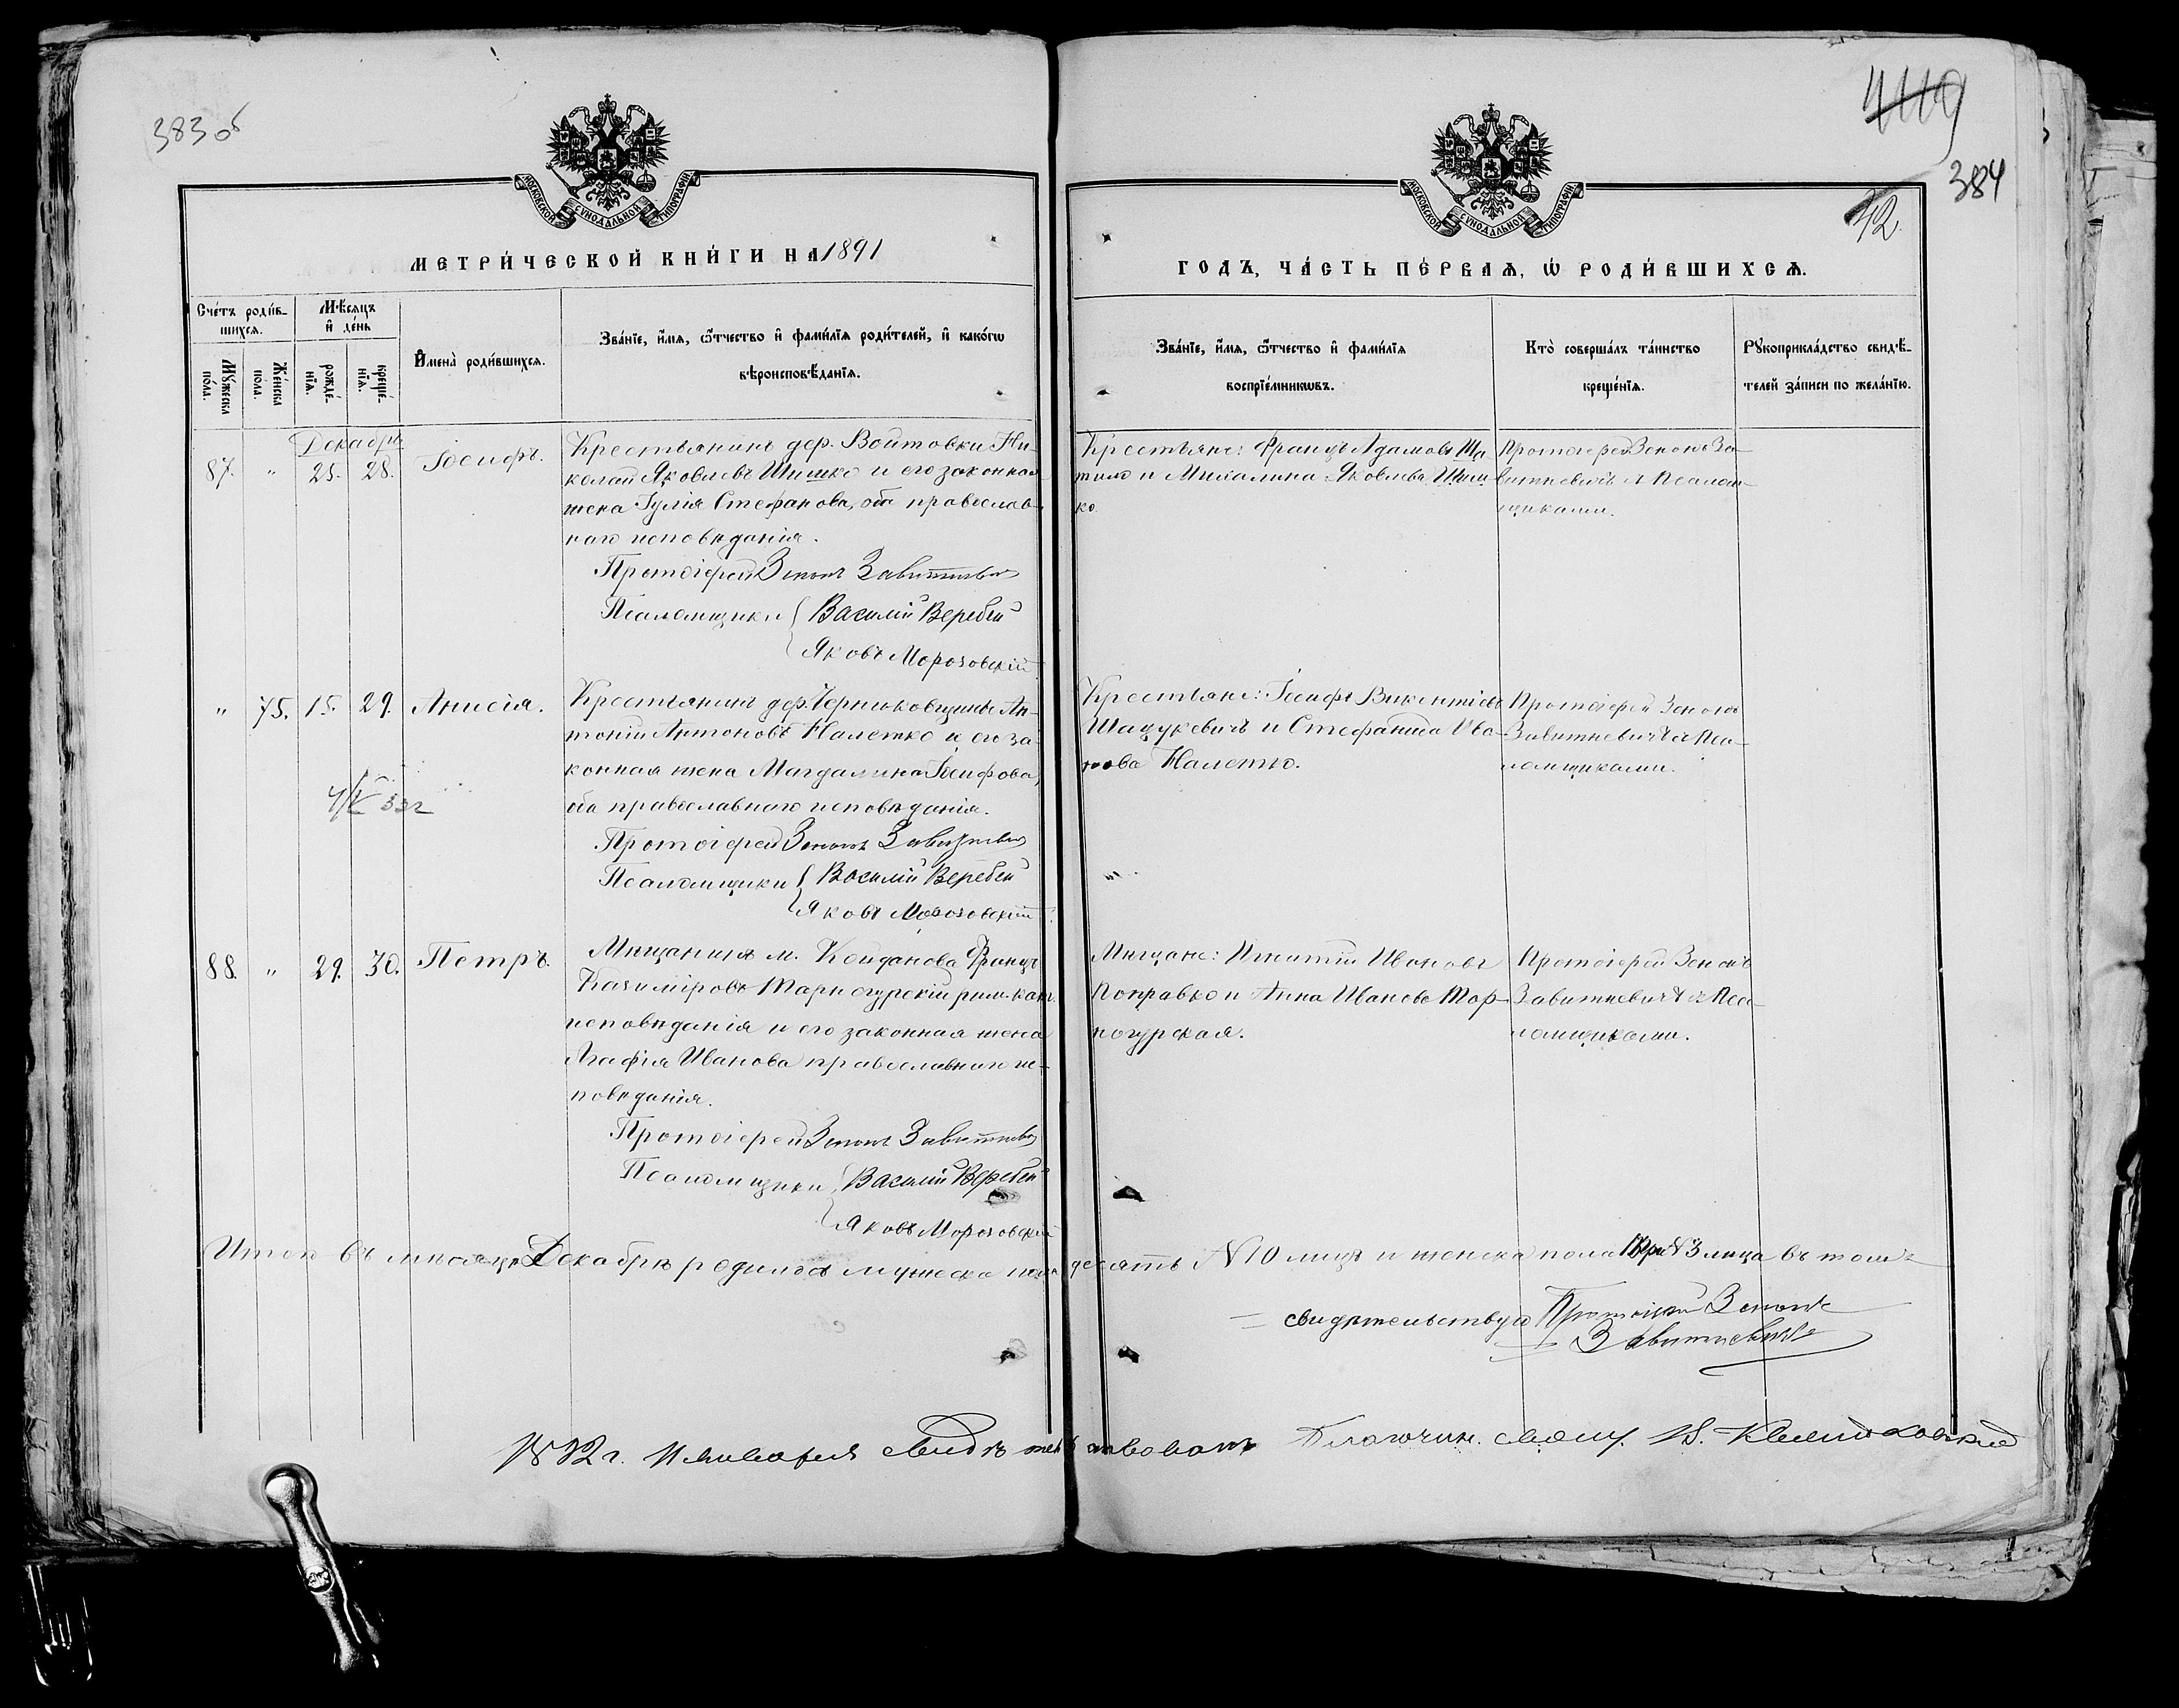 383 об
4119
384
42.
МОСКОВСКОЙ СѴНОДАЛЬНОЙ ТИПОГРАФІИ
МОСКОВСКОЙ СѴНОДАЛЬНОЙ ТИПОГРАФІИ
МЕТРИ́ЧЕСКОЙ КНИ́ГИ НА 1891
ГОДЪ, ЧА́СТЬ ПЕ́РВАѦ, Ѡ҆ РОДИ́ВШИХСѦ.
Сче́тъ роди́в-
шихсѧ.
Мѣ́сѧцъ
и҆ де́нь
Мꙋ́жеска
по́ла.
Же́нска
пола.
рожде́-
нїѧ.
креще́-
нїѧ.
И҆мена̀ роди́вшихсѧ.
Зва́нїе, и҆́мѧ, ѻ҆́тчество и҆ фами́лїѧ роди́телей, и҆ како́гѡ
вѣроисповѣ́данїѧ.
Зва́нїе, и҆́мѧ, ѻ҆́тчество и҆ фами́лїѧ
воспрїе́мникѡвъ.
Кто̀ соверша́лъ та́инство
креще́нїѧ.
Рꙋкоприкла́дство свидѣ́-
телей за́писи по жела́нїю.
Декабрь
87. " 25. 28. Іосифъ.
Крестьянинъ дер. Войтовки Ни-
колай Яковлевъ Шишко и его законная
жена Іулія Стефанова, оба православ-
наго исповѣданія.
Протоіерей Зенонъ Завитневичъ
Псаломщики { Василій Веребей
Яковъ Морозовскій
Крестьяне: Францъ Адамовъ Ша
тило и Михалина Яковлева Шиш
ко.
Протоіерей Зенонъ За-
витневичъ съ Псалом-
щиками.
" 75. 15. 29. Анисія.
Крестьянинъ дер. Чернюковщины Ан-
тоній Антоновъ Налетко и его за-
конная жена Магдалина Іосифова,
оба православнаго исповѣданія.
Протоіерей Зенонъ Завитневичъ
Псаломщики { Василій Веребей
Яковъ Морозовскій
Крестьяне: Іосифъ Викентіевъ
Шацукевичъ и Стефанида Ива-
нова Налетко.
Протоіерей Зенонъ
Завитневичъ съ Пса-
ломщиками.
88. " 29. 30. Петръ.
Мѣщанинъ м. Койданова Францъ
Казиміровъ Тарногурскій рим. кат.
исповѣданія и его законная жена
Агафія Иванова православнаго ис-
повѣданія.
Протоіерей Зенонъ Завитневичъ
Псаломщики { Василій Веребей
Яковъ Морозовскій
Мѣщане: Игнатій Ивановъ
Поправко и Анна Иванова Тар-
ногурская.
Протоіерей Зенонъ
Завитневичъ съ Пса-
ломщиками.
Итого въ мѣсяцѣ Декабрѣ родилось мужеска пола десять N 10 лицъ и женска пола три N 3 лица въ томъ
свидѣтельствую Протоіерей Зенонъ
Завитневичъ
1892 г. Января свидѣтельствовалъ Благочин. свящ.